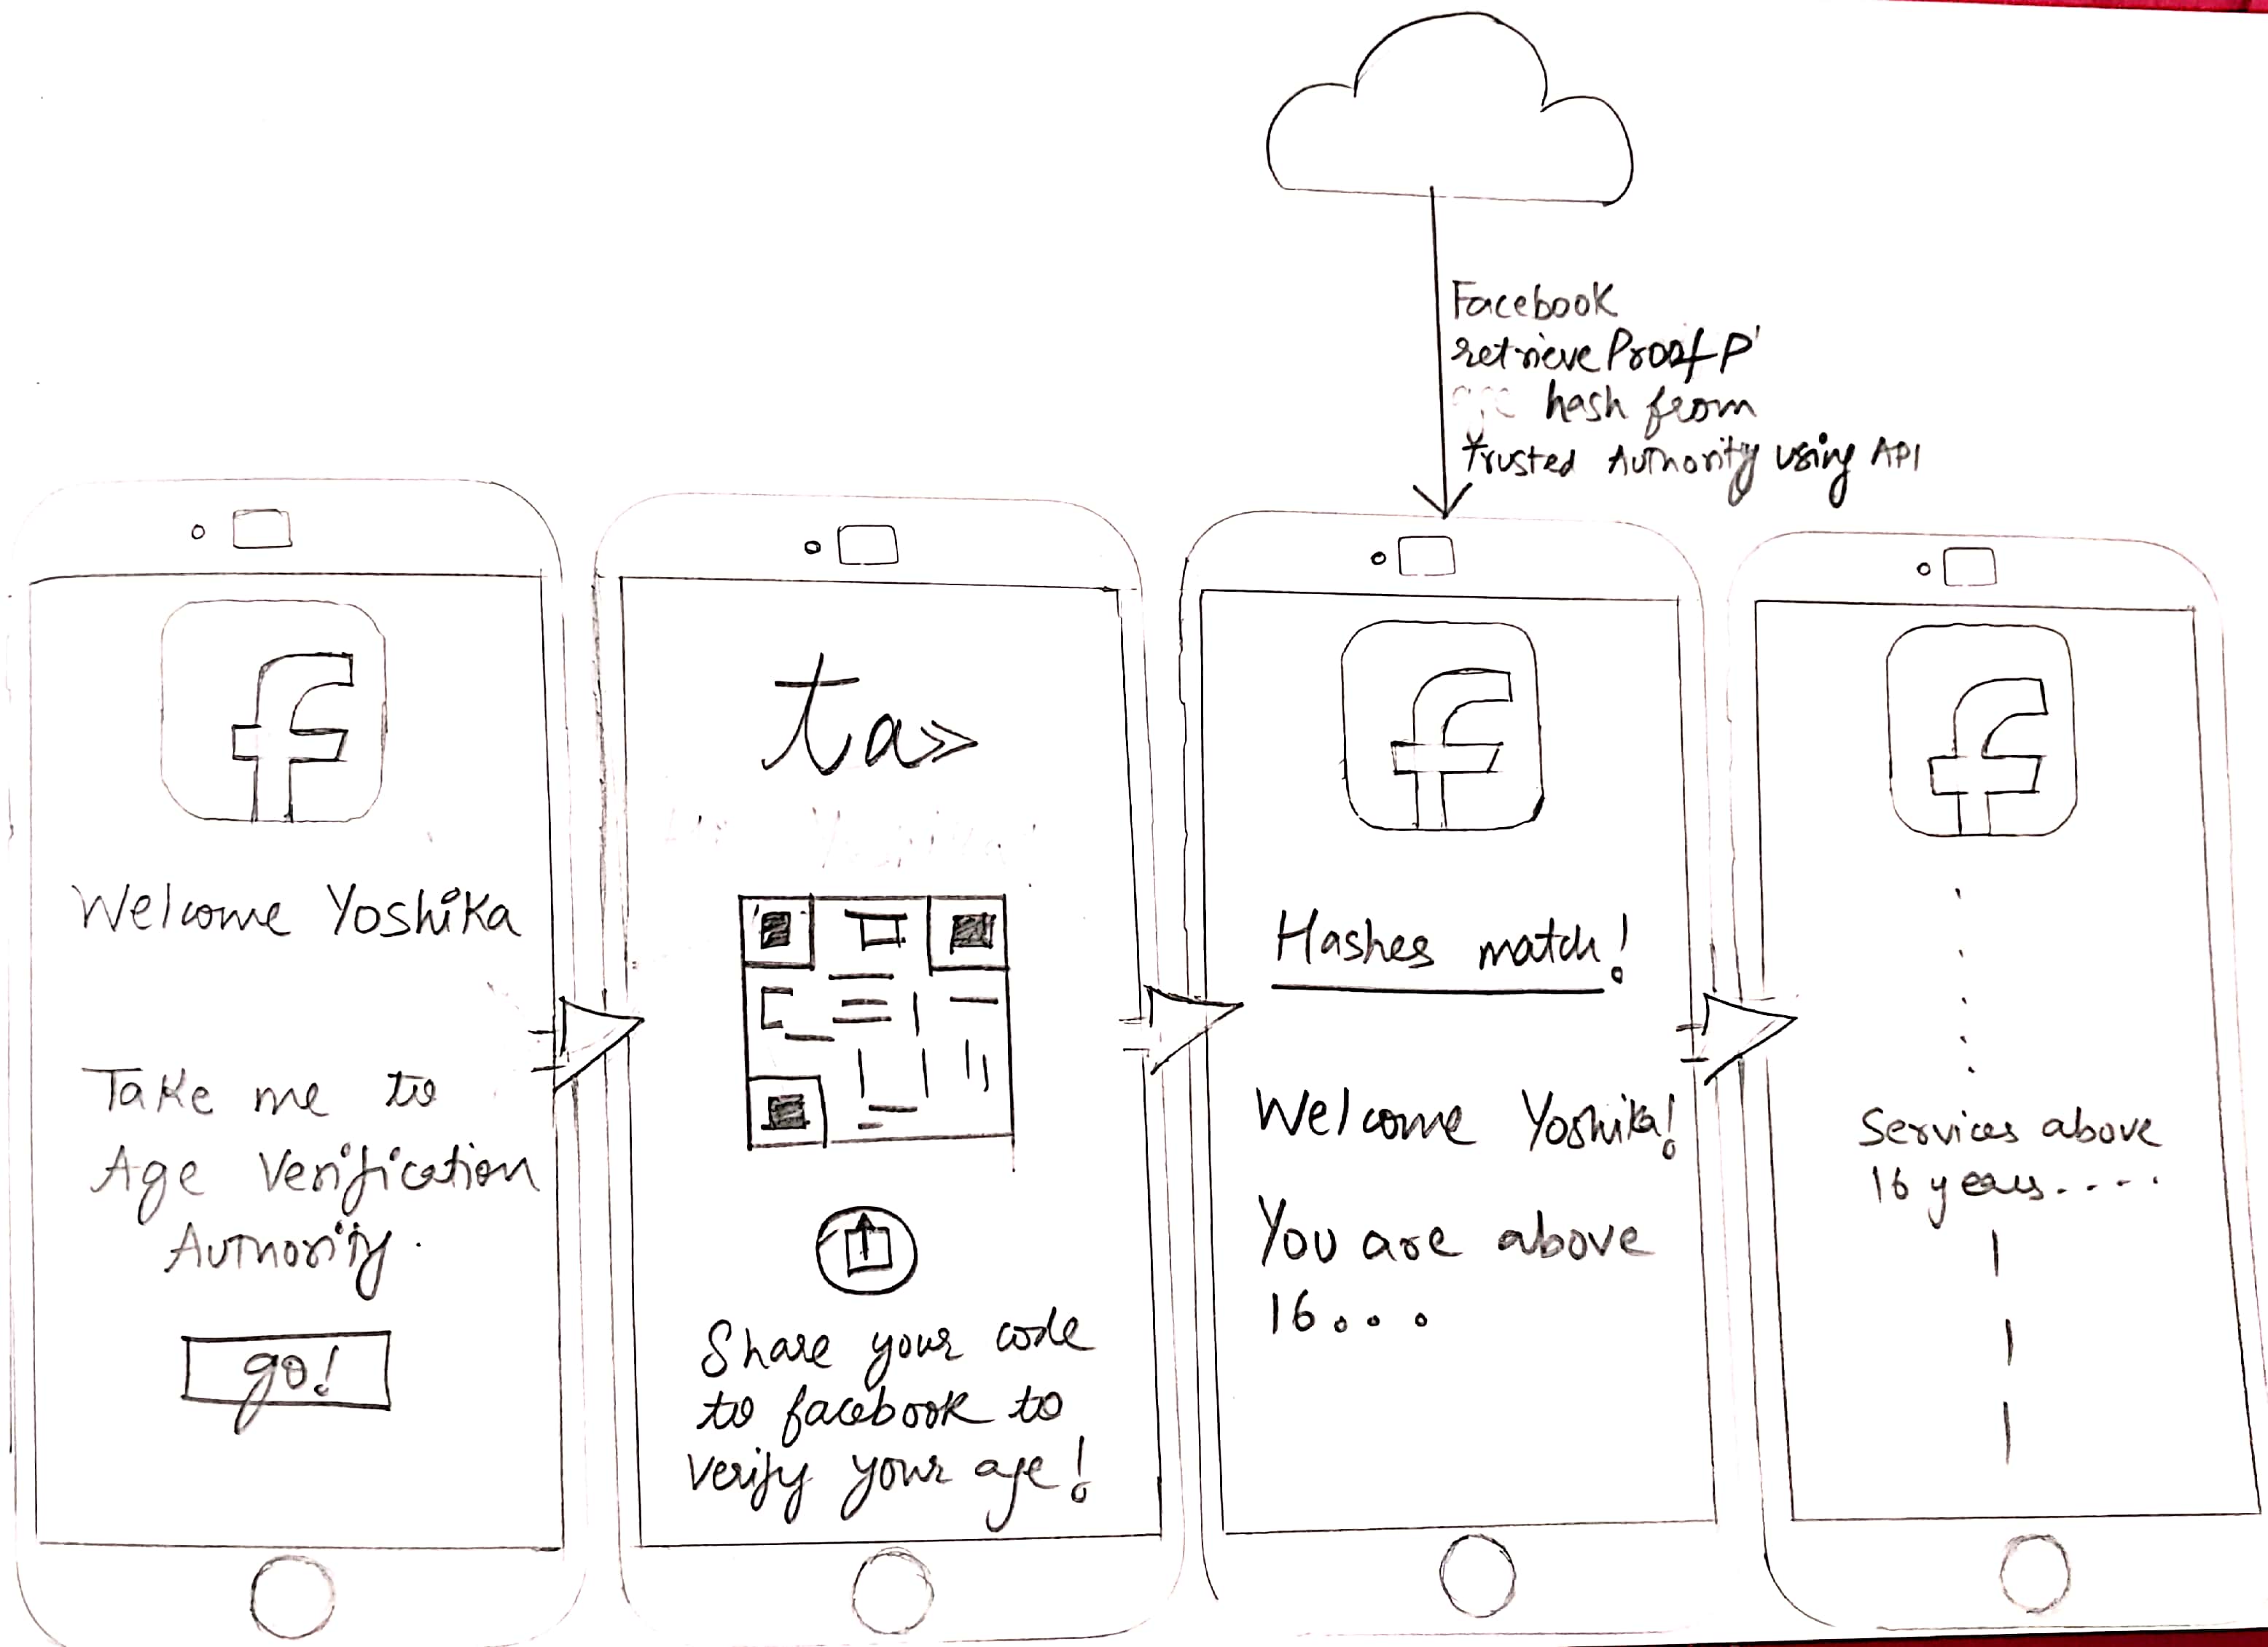 Facebook
retrieve Proof P'
age hash from
Trusted Authority using API
f
Welcome Yoshika
Take me to
Age Verification
Authority.
go!
ta>>
Share your code
to facebook to
verify your age!
f
Hashes match!
Welcome Yoshika!
You are above
16...
f
Services above
16 years....